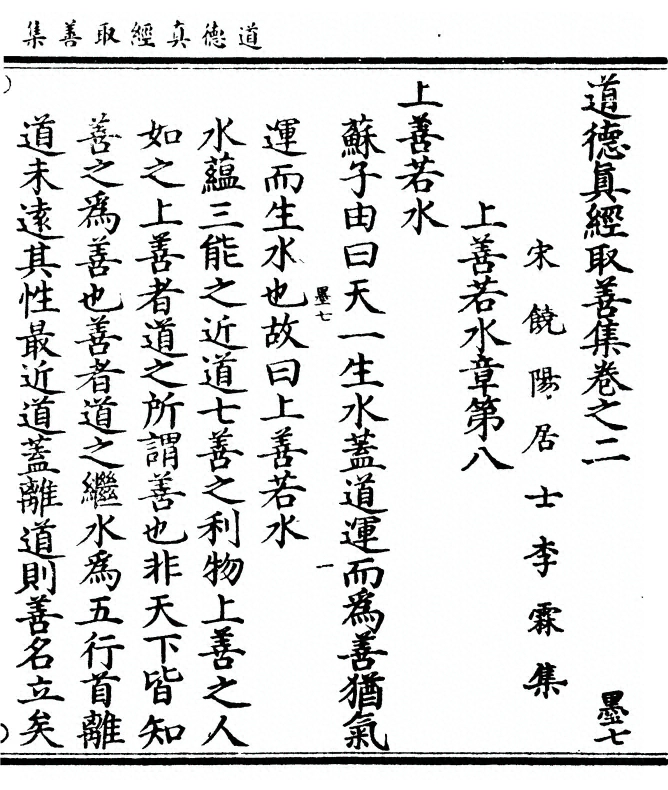 道德真經取善集
道德眞經取善集卷之二
墨七
宋饒陽居士李霖集
上善若水章第八
上善若水
蘇子由曰天一生水蓋道運而爲善猶氣
墨七
一
運而生水也故曰上善若水
水蘊三能之近道七善之利物上善之人
如之上善者道之所謂善也非天下皆知
善之爲善也善者道之繼水爲五行首離
道未遠其性最近道蓋離道則善名立矣